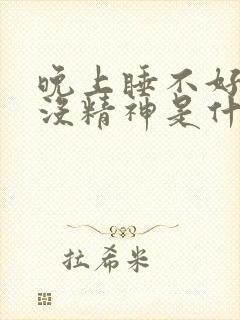 晚上睡不好
没精神是什
拉希米